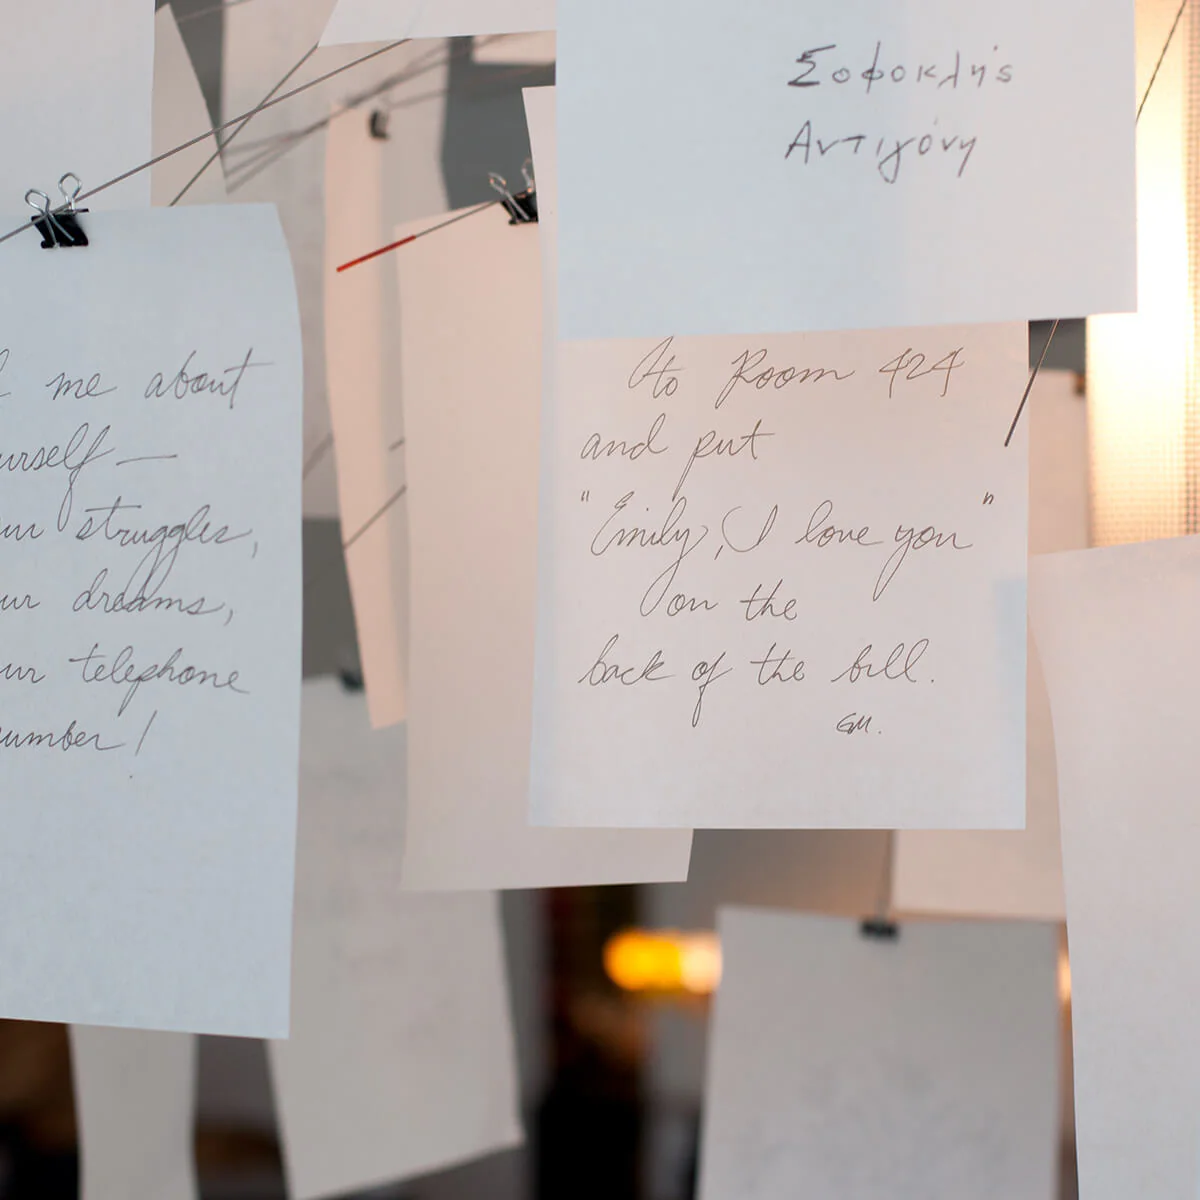 Σοφοκλής
Αντιγόνη
me about
urself —
ur struggles,
ur dreams,
ur telephone
umber!
to Room 424
and put
"Emily, I love you"
on the
back of the bill.
GM.